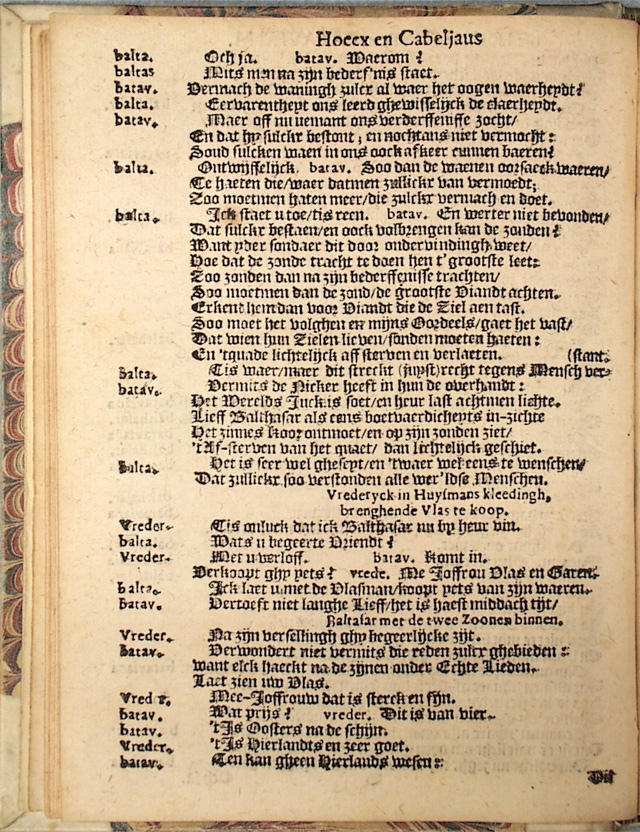 Hoecx en Cabeljaus
balta. Och ja. batav. Waerom?
baltas Mits men na zijn bederf'nis staet.
batav. Vermach de waningh zulcx al waer het oogen waerheydt?
balta. Eervarentheyt ons leerd ghewisselijck de claerheydt.
batav. Maer off nu yemant ons verderffenisse zocht/
En dat hy sulckx bestont; en nochtans niet vermocht:
Soud sulcken waen in ons oock afkeer cunnen baeren?
balta. Ontwijffelijck. batav. Soo dan de waenen oorsaeck waeren/
Te haeten die/waer datmen zullickx van vermoedt;
Zoo moetmen haten meer/die zulckx vermach en doet.
balta. Ick staet u toe/tis reen. batav. En werter niet bevonden/
Dat sulckx bestaen/en oock volbrengen kan de zonden?
Want yder sondaer dit door ondervindingh weet/
Hoe dat de zonde tracht te doen hen t'grootste leet:
Zoo zonden dan na zijn bederffenisse trachten/
Soo moetmen dan de zond/de grootste Viandt achten.
Erkent hem dan voor Viandt die de Ziel aen tast.
Soo moet het volghen en mijns Oordeels/gaet het vast/
Dat wien hun Zielen lieven/sonden moeten haeten:
En 'tquade lichtelijck aff sterven en verlaeten. (stant.
Balta. Tis waer/maer dit streckt (juyst) recht tegens Mensch ver-
batav. Vermits de Nicker heeft in hun de overhandt:
Het Werelds Juck is soet/en heur last achtmen lichte.
Lieff Balthasar als eens boetvaerdicheyts in-zichte
Het zinnes koor ontmoet/en op zijn zonden ziet/
't Af-sterven van het quaet/ dan lichtelijck geschiet.
Balta. Het is seer wel gheseyt/en 'twaer wel eens te wenschen/
Dat zullickx soo verstonden alle wer'ldse Menschen.
Vrederyck in Huysmans kleedingh,
brenghende Vlas te koop.
Vreder. Tis onluck dat ick Balthasar nu by heur vin.
balta. Wats u begeerte Vriendt?
Vreder. Met u verloff. batav. Komt in.
Verkoopt ghy yets? vrede. Me Joffrou Vlas en Garen.
balta. Ick laet u met de Vlasman/koopt yets van zijn waeren.
batav. Vertoeft niet langhe Lieff/het is haest middach tijt/
Baltasar met de twee Zoonen binnen.
Vreder. Na zijn verselingh ghy begeerlijcke zijt.
Batav. Verwondert niet vermits die reden zulcx ghebieden:
want elck haeckt na de zijnen onder Echte Lieden.
Laet zien uw Vlas.
Vreder. Mee-Joffrouw dat is sterck en fijn.
batav. Wat prijs? vreder. Dit is van vier.
batav. 't Is Oosters na de schijn.
Vreder. 't Is Hierlandts en zeer goet.
batav. Ten kan gheen Hierlands wesen:
Dit